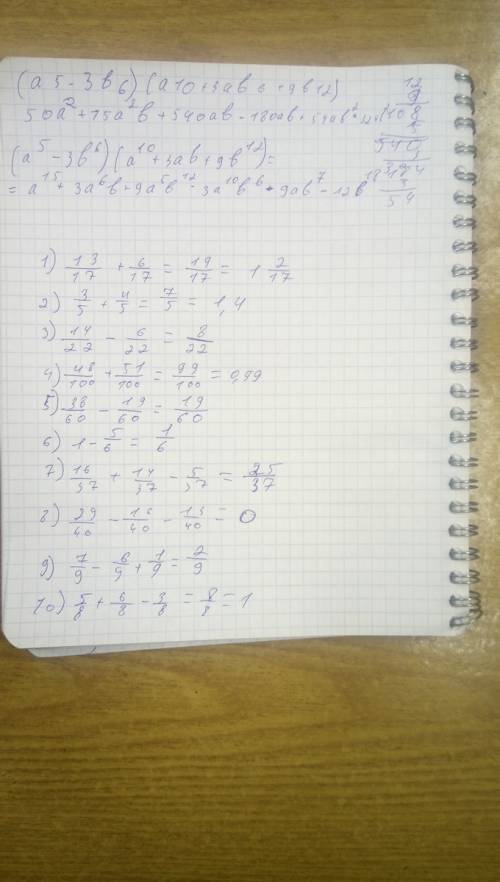 (a5-3b6)(a10+3ab6+9b12)
50a²+15a²b+540ab-180ab
12
9
108
5
540
3
54
(a⁵-3b⁶)(a¹⁰+3ab+9b¹²)=
=a¹⁵+3a⁶b+9a⁵b¹²-3a¹⁰b⁶-9ab⁷-12b¹⁸
1) 13/17 + 6/17 = 19/17 = 1 2/17
2) 3/5 + 4/5 = 7/5 = 1,4
3) 14/22 - 6/22 = 8/22
4) 48/100 + 51/100 = 99/100 = 0,99
5) 38/60 - 19/60 = 19/60
6) 1 - 5/6 = 1/6
7) 16/37 + 14/37 - 5/37 = 25/37
8) 29/40 - 16/40 - 13/40 = 0
9) 7/9 - 6/9 + 1/9 = 2/9
10) 5/8 + 6/8 - 3/8 = 8/8 = 1